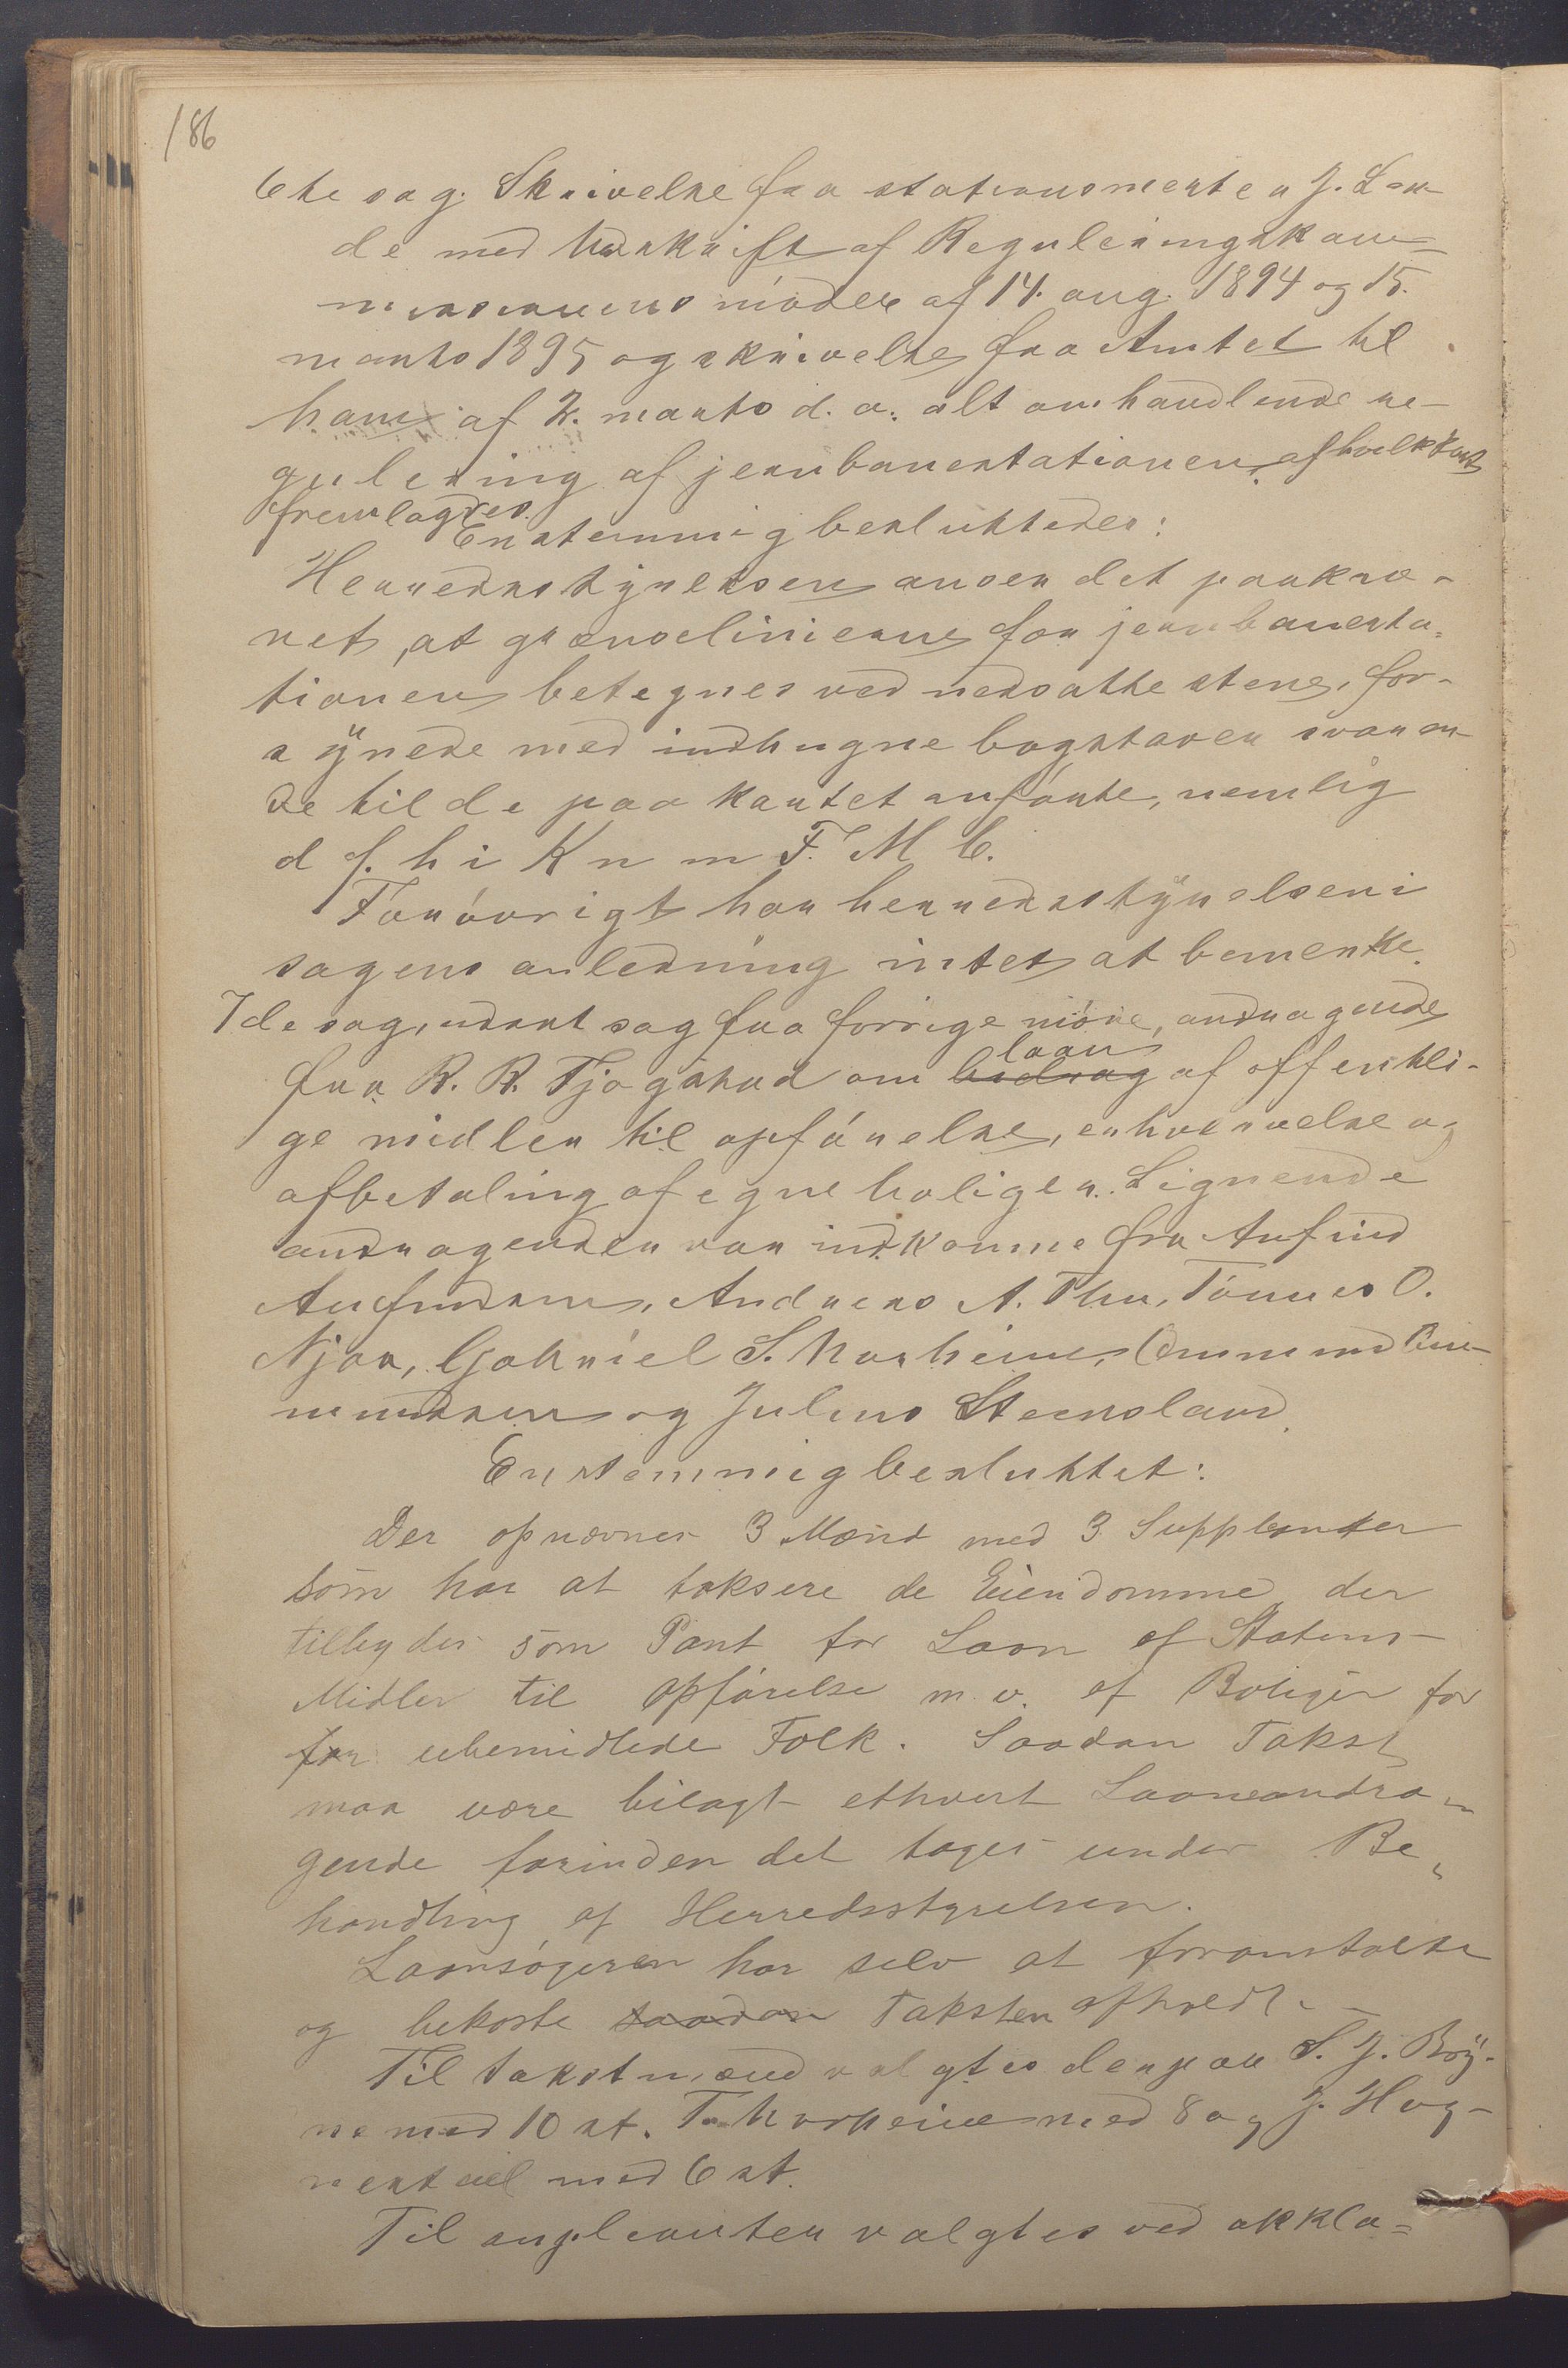 186
6te sag. Skrivelse fra stationsmester J. Lan-
de med Udskrift af Reguleringskom-
missionens møder af 14. aug. 1894 og 15.
marts 1895 og skrivelse fra Amtet til
ham af 2. marts d. a. alt omhandlende re-
gulering af jernbanestationen, af hvilk Kart
fremlagdes.
Enstemmig besluttedes:
Herredsstyrelsen anser det paakræ-
vet, at grænselinierne for jernbanesta-
tionen betegnes ved nedsatte stene, for-
synede med indhugne bogstaver svaren-
de til de paa kartet anførte, nemlig
d f. h i K n m F. M C.
Forøvrigt har herredsstyrelsen i
sagens anledning intet at bemerke.
7de sag, udsat sag fra forrige møde, andragende
fra R. R. Tjøgstad om bidrag laan af offentli-
ge midler til opførelse, erhvervelse og
afbetaling af egne boliger. Lignende
andragender var indkomme fra Arfind
Arfindsen, Andreas A. Thu, Tønnes O.
Njaa, Gabriel S. Norheim, Ommund Om-
mundsen og Julius Steensland.
Enstemmig besluttet:
Der opnævnes 3 Mænd med 3 Supplenter
som har at taksere de Eiendomme, der
tilbydes som Pant for Laan af Statens
Midler til Opførelse m. v. af Boliger for
for ubemidlede Folk. Saadan Takst
maa være bilagt ethvert Laaneandra-
gende forinden det tages under Be-
handling af Herredsstyrelsen.
Laansøgeren har selv at foranstalte
og bekoste saadan Taksten afholdt.
Til takstmænd valgtes derpaa S. J. Bry-
ne med 10 st. T. Norheim med 8 og J. Hog-
nestad med 6 st.
Til suplenter valgtes ved akkla-